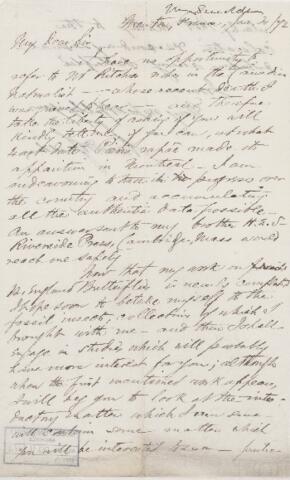 Mentone, France, Jan. 21/72
My Dear Sir
I have no opportunity to
refer to Mr Ritchie's notes in the Canadian
Naturalist — whose recent death, I
was grieved to hear — and therefore
take the liberty of asking if you will
kindly tell me if you can, at what
exact date Pieris rapae made its
apparition in Montreal — I am
endeavoring to trace its progress over
the country and accumulating
all the authentic data possible —
an answer sent to my brother H.E.S.
Riverside Press, Cambridge, Mass would
reach me safely —
Now that my work on
N. England Butterflies is nearly completed
I hope soon to betake myself to the
fossil insects, collections of which I
brought with me — and then I shall
engage in studies which will probably
have more interest for you; although
when the first mentioned work appears,
I will beg you to look at the intro-
ductory chapter which I am sure
will contain some matter which
you will be interested to see —